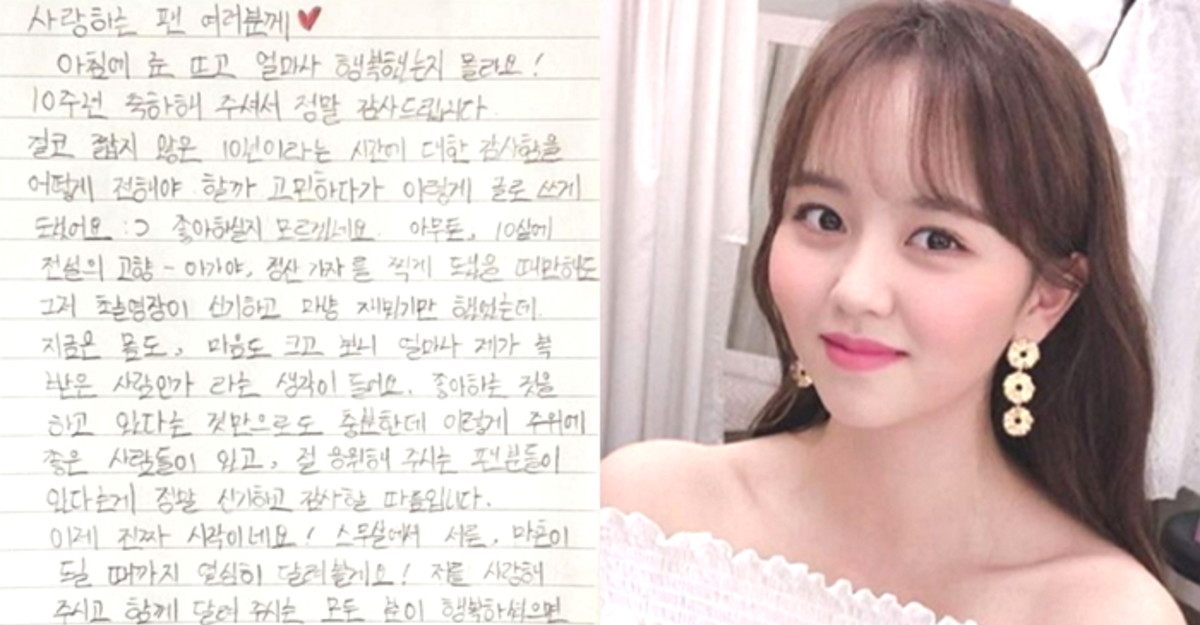 사랑하는 팬 여러분께
아침에 눈 뜨고 얼마나 행복했는지 몰라요!
10주년 축하해 주셔서 정말 감사드립니다.
결코 짧지 않은 10년이라는 시간에 대한 감사함을
어떻게 전해야 할까 고민하다가 이렇게 글로 쓰게
됐어요 :) 좋아하실지 모르겠네요. 아무튼, 10살에
전설의 고향 - 아가야, 청산 가자를 찍게 됐을 때만해도
그저 촬영장이 신기하고 마냥 재밌기만 했었는데.
지금은 몸도, 마음도 크고 보니 얼마나 제가 복
받은 사람인가 라는 생각이 들어요. 좋아하는 것을
하고 있다는 것만으로도 충분한데 이렇게 주위에
좋은 사람들이 있고, 절 응원해 주시는 팬분들이
있다는게 정말 신기하고 감사할 따름입니다.
이제 진짜 시작이네요! 스무살에서 서른, 마흔이
될 때까지 열심히 달려볼게요! 저를 사랑해
주시고 함께 달려 주시는 모든 분이 행복하셨으면